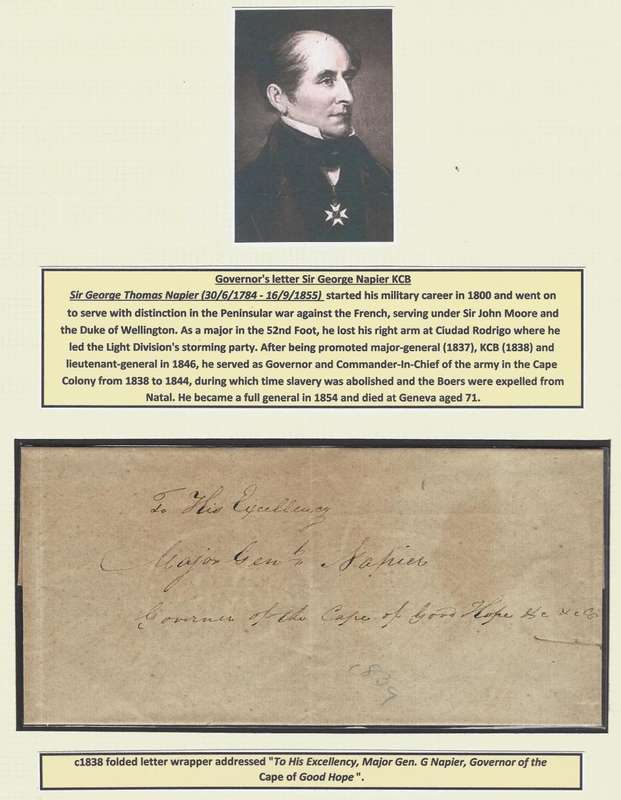 Governor's letter Sir George Napier KCB
Sir George Thomas Napier (30/6/1784 - 16/9/1855) started his military career in 1800 and went on
to serve with distinction in the Peninsular war against the French, serving under Sir John Moore and
the Duke of Wellington. As a major in the 52nd Foot, he lost his right arm at Ciudad Rodrigo where he
led the Light Division's storming party. After being promoted major-general (1837), KCB (1838) and
lieutenant-general in 1846, he served as Governor and Commander-In-Chief of the army in the Cape
Colony from 1838 to 1844, during which time slavery was abolished and the Boers were expelled from
Natal. He became a full general in 1854 and died at Geneva aged 71.
To His Excellency
Major Genl. Napier
Governor of the Cape of Good Hope &c &c &c
c839
c1838 folded letter wrapper addressed "To His Excellency, Major Gen. G Napier, Governor of the
Cape of Good Hope ".